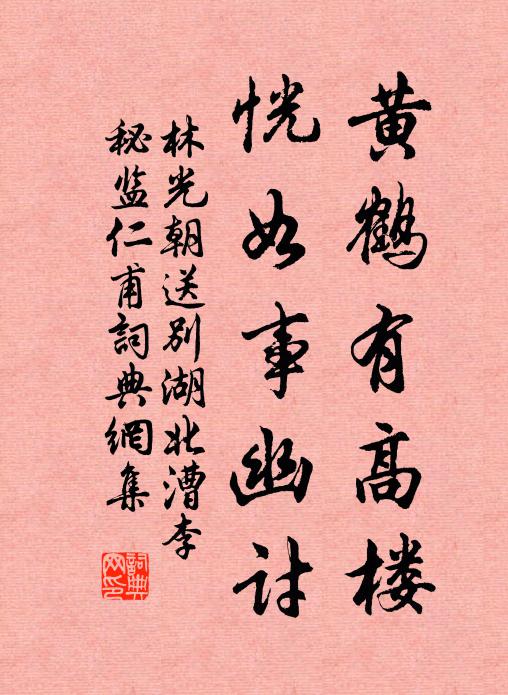 黄鹤有高楼
恍如事幽讨
林光朝送别湖北漕李
秘监仁甫詞典網集
詞典网印